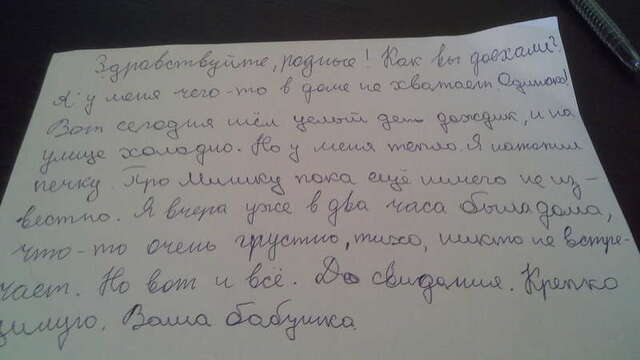 Здравствуйте, родные! Как вы доехали?
А у меня чего-то в доме не хватает. Одиноко!
Вот сегодня шёл целый день дождик, и на
улице холодно. Но у меня тепло. Я натопил
печку. Про Мишку пока ещё ничего не из-
вестно. Я вчера уже в два часа была дома,
что-то очень грустно, тихо, никто не встре-
чает. Но вот и всё. До свидания. Крепко
целую. Ваша бабушка